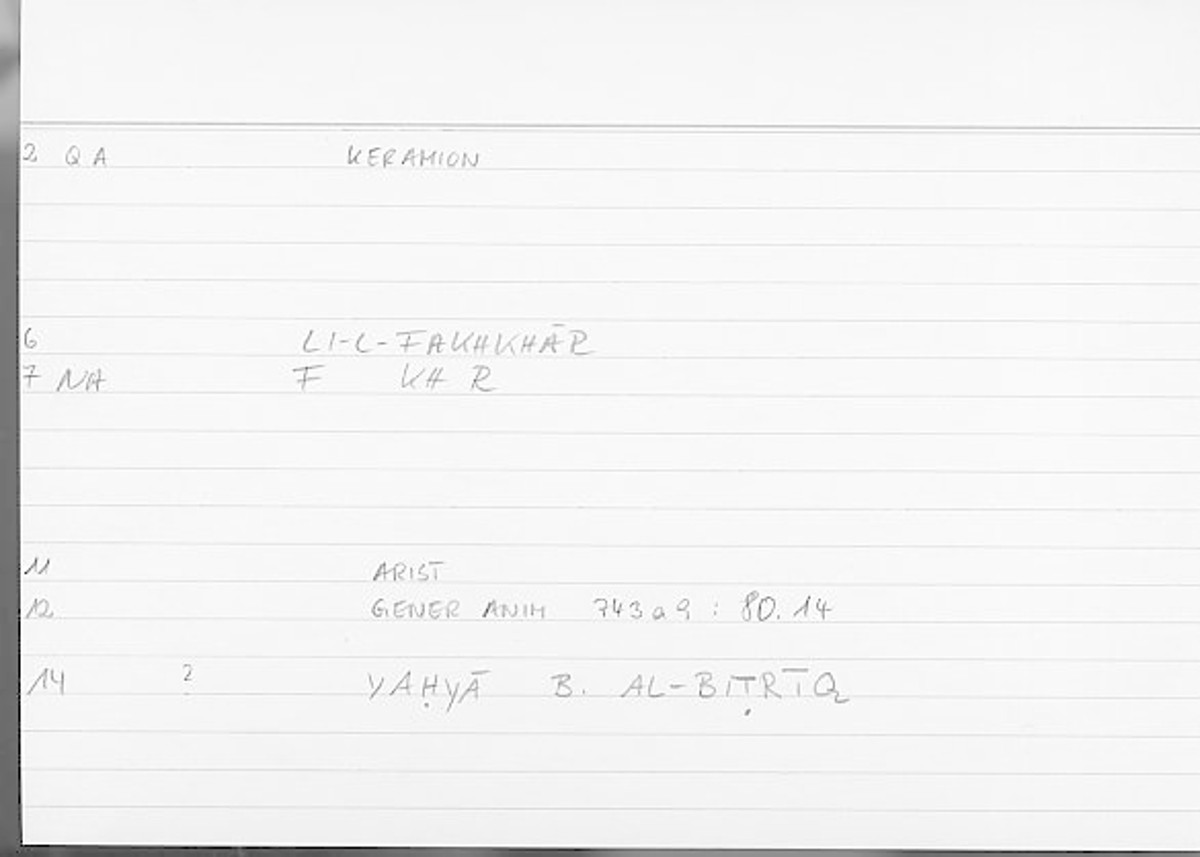 2 QA KERAMION
6 LI-L-FAKHKHĀR
7 NA F KH R
11 ARIST
12 GENER ANIM 743a9 : 80.14
14 ? YAḤYĀ B. AL-BIṬRĪQ